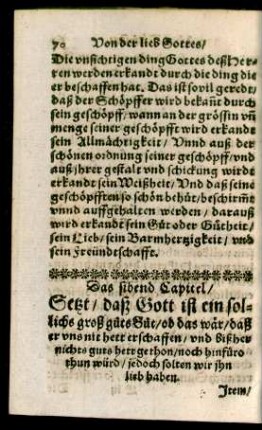 70 Von der lieb Gottes/
Die vnsichtigen ding Gottes deß Her-
ren werden erkandt durch die ding die
er beschaffen hat. Das ist so vil geredt,
daß der Schöpffer wird bekañt durch
sein geschöpff/ wann an der grössin vñ
menge seiner geschöpfft wird erkandt
sein Allmächtigkeit / Vnnd auß der
schönen ordnung seiner geschöpff/ vnd
auß jhrer gestalt vnd schickung wirdt
erkandt sein Weißheit/ Vnd daß seine
geschöpfften so schön behüt/ beschirmt
vnnd auffgehalten werden / darauß
wird erkandt sein Güt oder Gütheit/
sein Lieb/ sein Barmhertzigkeit / vnd
sein Freündtschafft.
Das sibend Capitel/
Setzt / daß Gott ist ein sol-
lichs groß gůts Gůt/ ob das wär/ daß
er vns nit hett erschaffen / vnd bißher
nichts guts hett gethon/ noch hinfüro
thun würd / jedoch solten wir jhn
lieb haben.
Item/